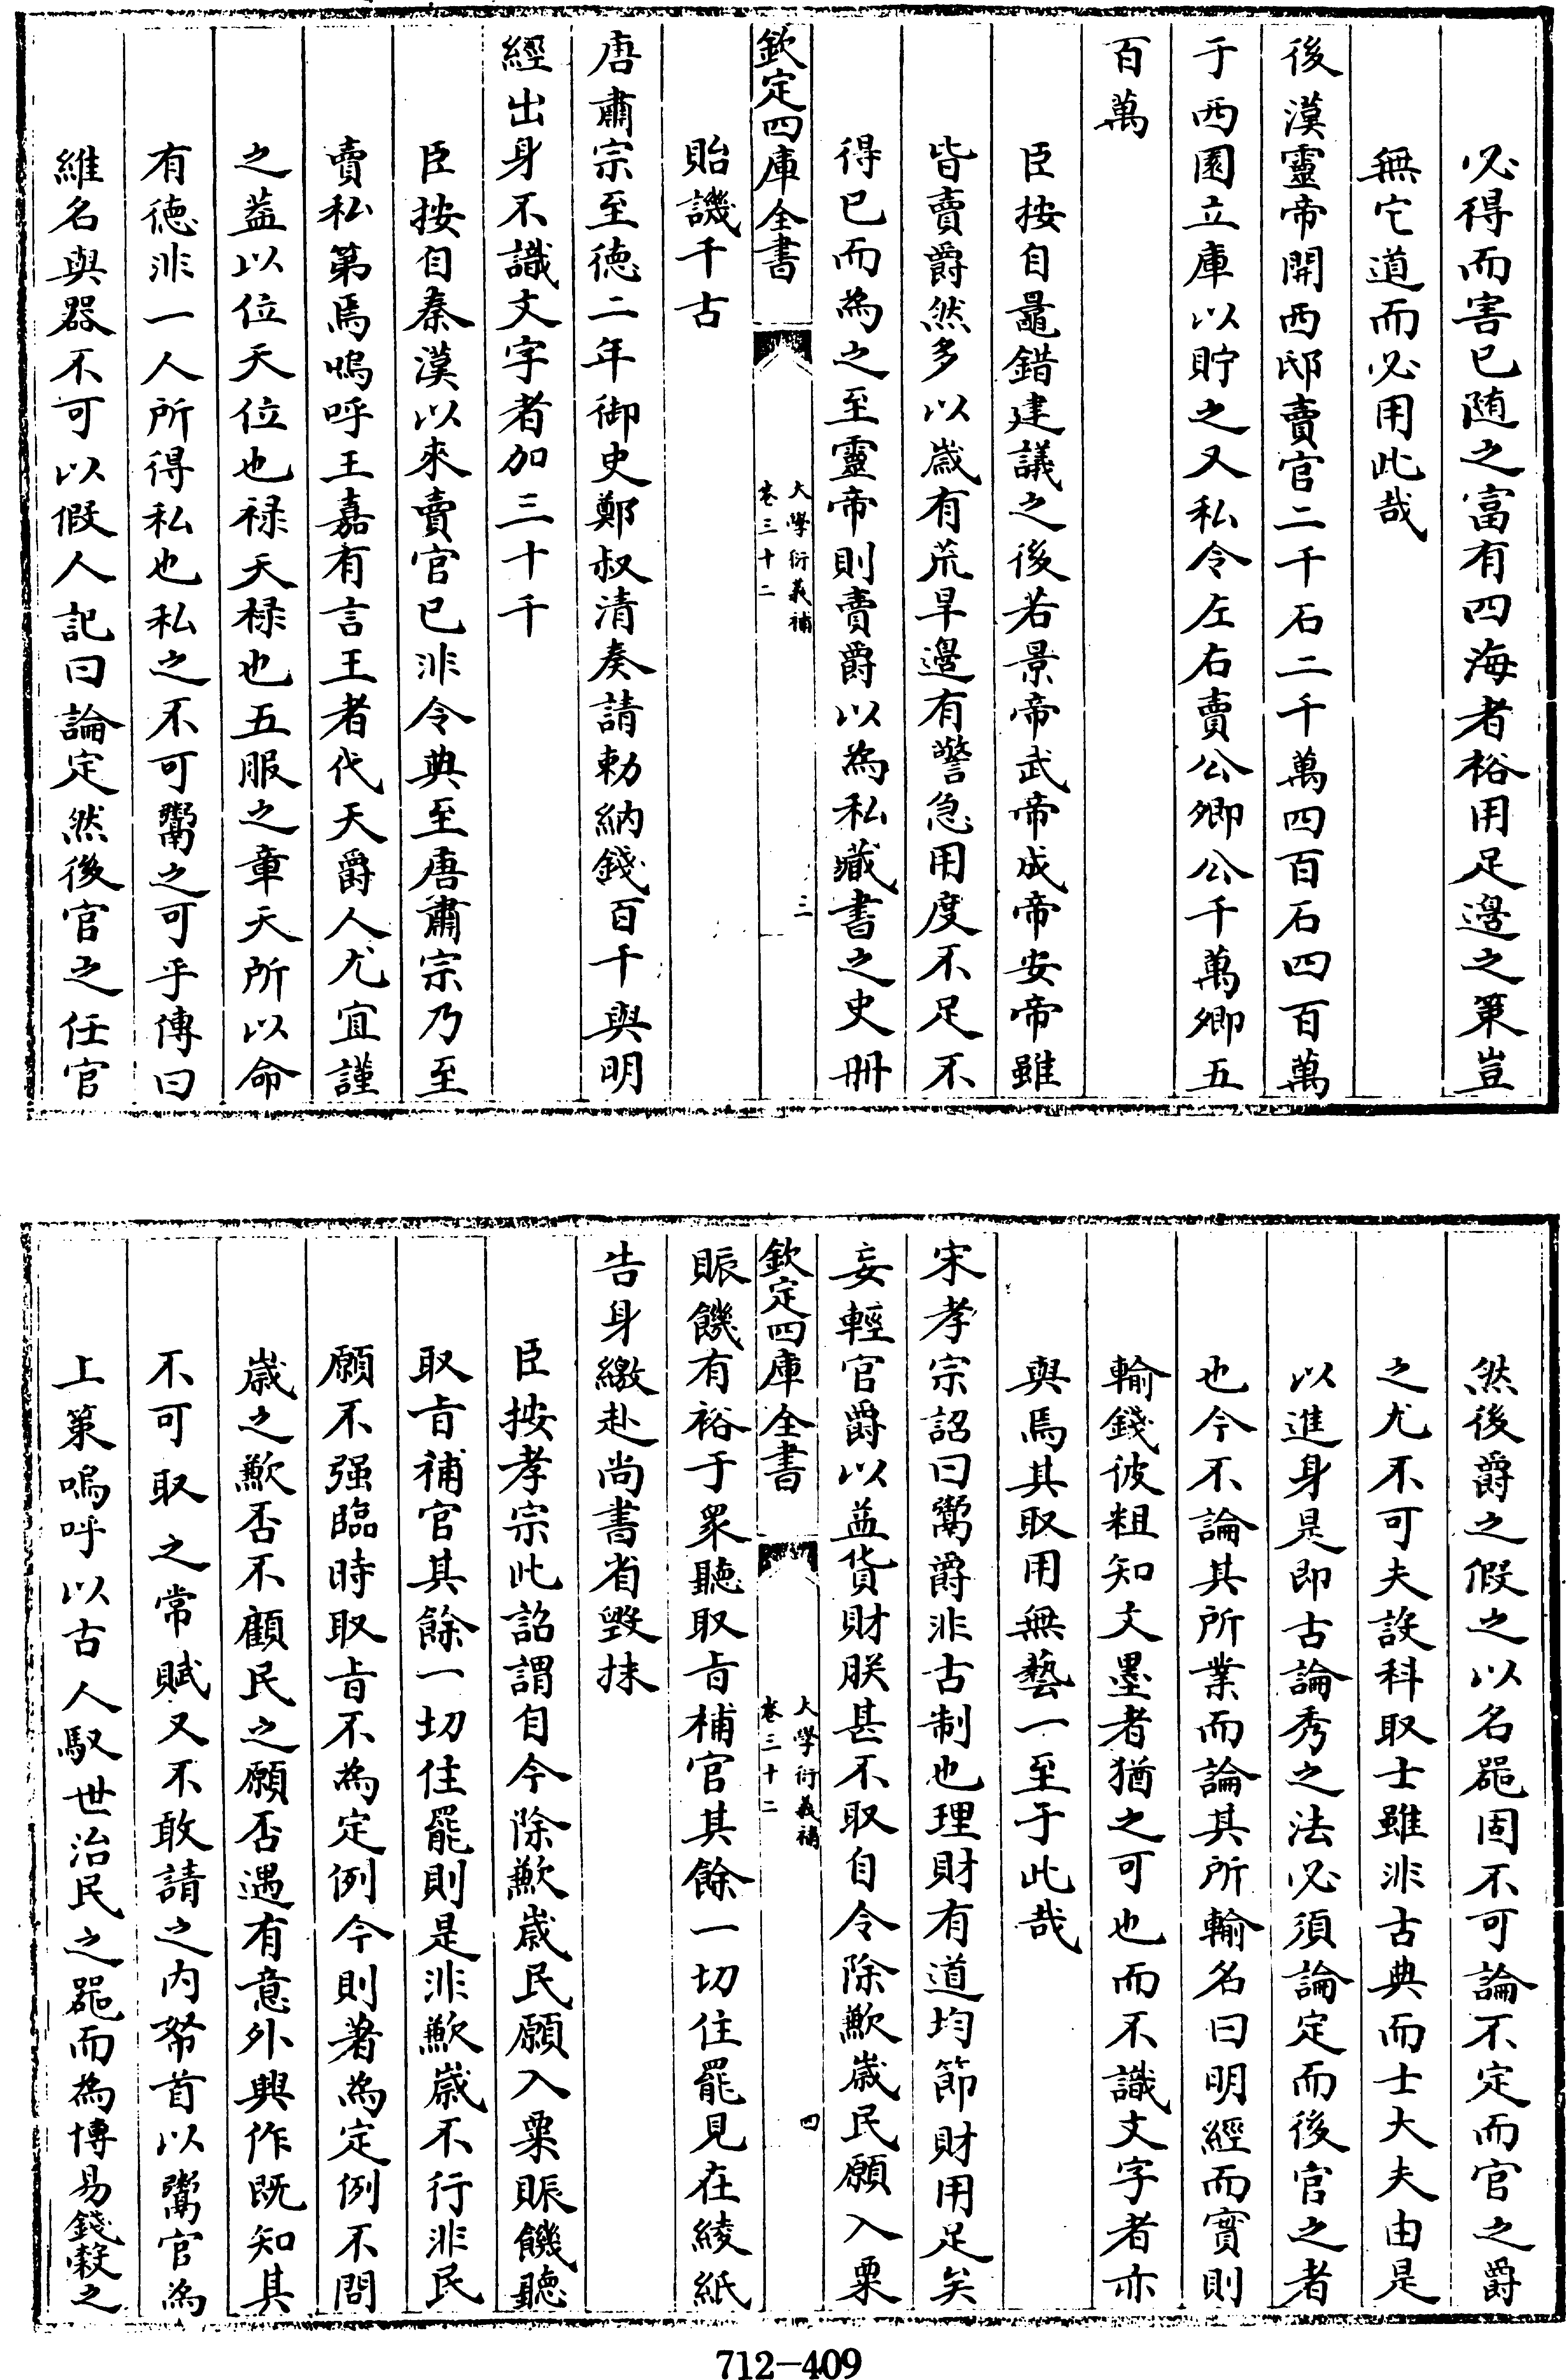 必得而害已随之富有四海者裕用足邊之策豈
無它道而必用此哉
後漢靈帝開西邸賣官二千石二千萬四百石四百萬
于西園立庫以貯之又私令左右賣公卿公千萬卿五
百萬
臣按自鼂錯建議之後若景帝武帝成帝安帝雖
皆賣爵然多以歳有荒旱邊有警急用度不足不
得已而為之至靈帝則賣爵以為私藏書之史冊
欽定四庫全書
大學衍義補
卷三十二
三
貽譏千古
唐肅宗至德二年御史鄭叔清奏請勅納錢百千與明
經出身不識文字者加三十千
臣按自秦漢以來賣官已非令典至唐肅宗乃至
賣私第焉嗚呼王嘉有言王者代天爵人尤宜謹
之葢以位天位也禄天禄也五服之章天所以命
有德非一人所得私也私之不可鬻之可乎傳曰
維名與器不可以假人記曰論定然後官之任官
然後爵之假之以名噐固不可論不定而官之爵
之尤不可夫設科取士雖非古典而士大夫由是
以進身是即古論秀之法必須論定而後官之者
也今不論其所業而論其所輸名曰明經而實則
輸錢彼粗知文墨者猶之可也而不識文字者亦
與焉其取用無藝一至于此哉
宋孝宗詔曰鬻爵非古制也理財有道均節財用足矣
妄輕官爵以益貨財朕甚不取自令除歉歳民願入粟
欽定四庫全書
大學衍義補
卷三十二
四
賑饑有裕于衆聽取㫖補官其餘一切住罷見在綾紙
告身繳赴尚書省毀抹
臣按孝宗此詔謂自今除歉歳民願入粟賑饑聽
取㫖補官其餘一切住罷則是非歉歳不行非民
願不强臨時取㫖不為定例今則著為定例不問
歳之歉否不顧民之願否遇有意外興作既知其
不可取之常賦又不敢請之内帑首以鬻官為
上策嗚呼以古人馭世治民之噐而為博易錢糓之
712-409